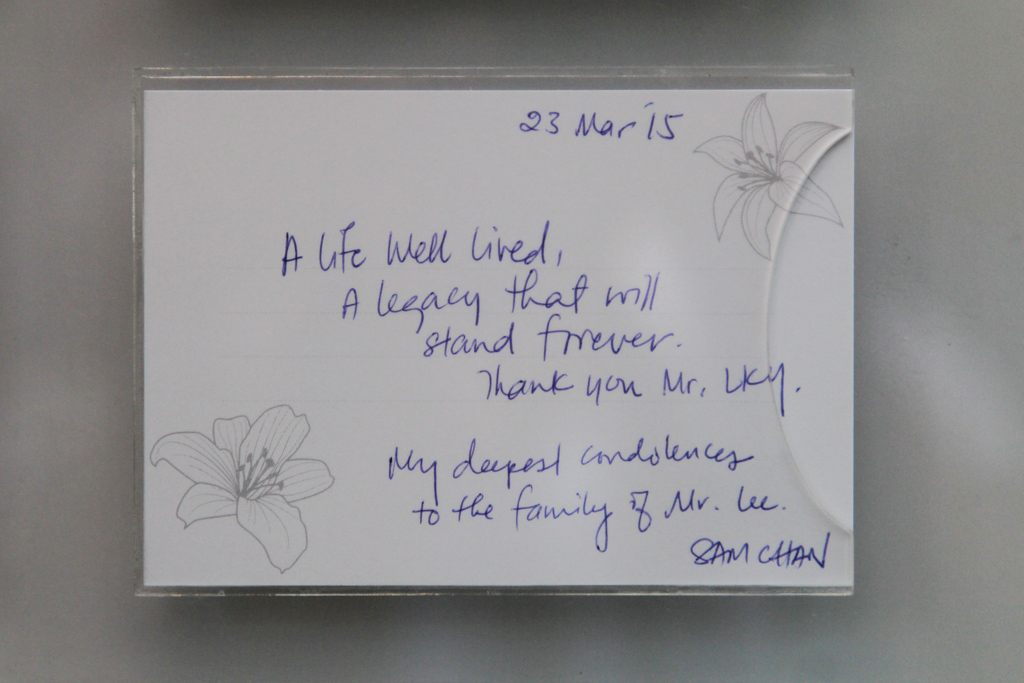 23 Mar '15
A life well lived,
A legacy that will
stand forever.
Thank you Mr. LKY.
My deepest condolences
to the family of Mr. Lee.
SAM CHAN